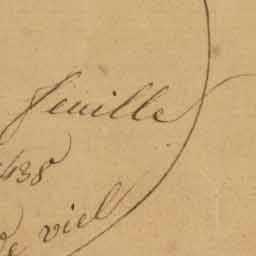 feuille
1438
de viel